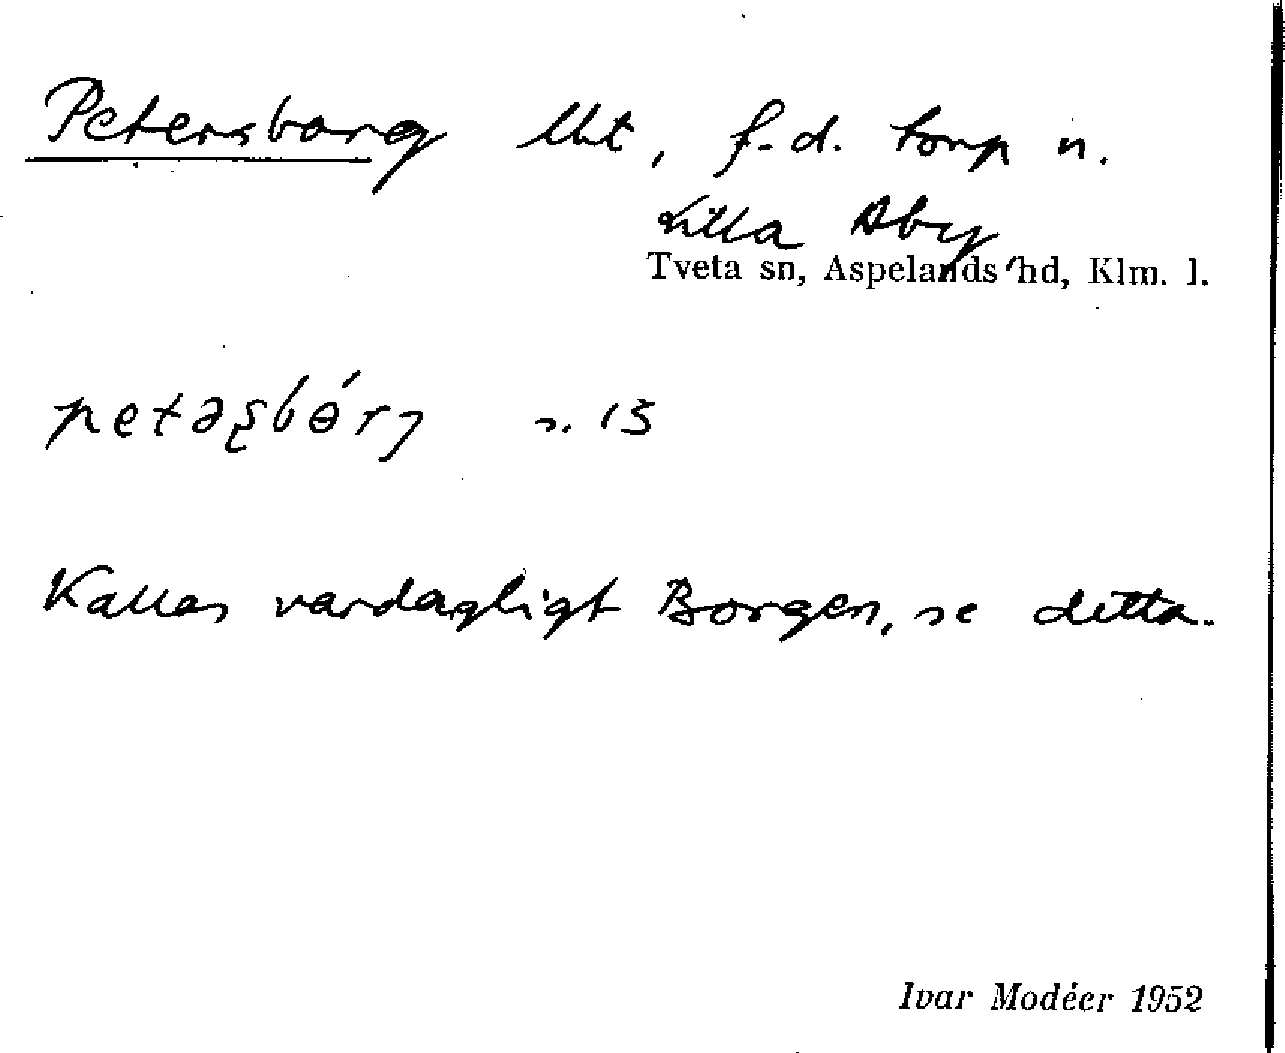 Petersborg lht, f.d. torp u.
Lilla Åby
Tveta sn, Aspelands hd, Klm. l.
petəʂbɵ́rj s. 15
Kallas vardagligt Borgen, se detta.
Ivar Modéer 1952